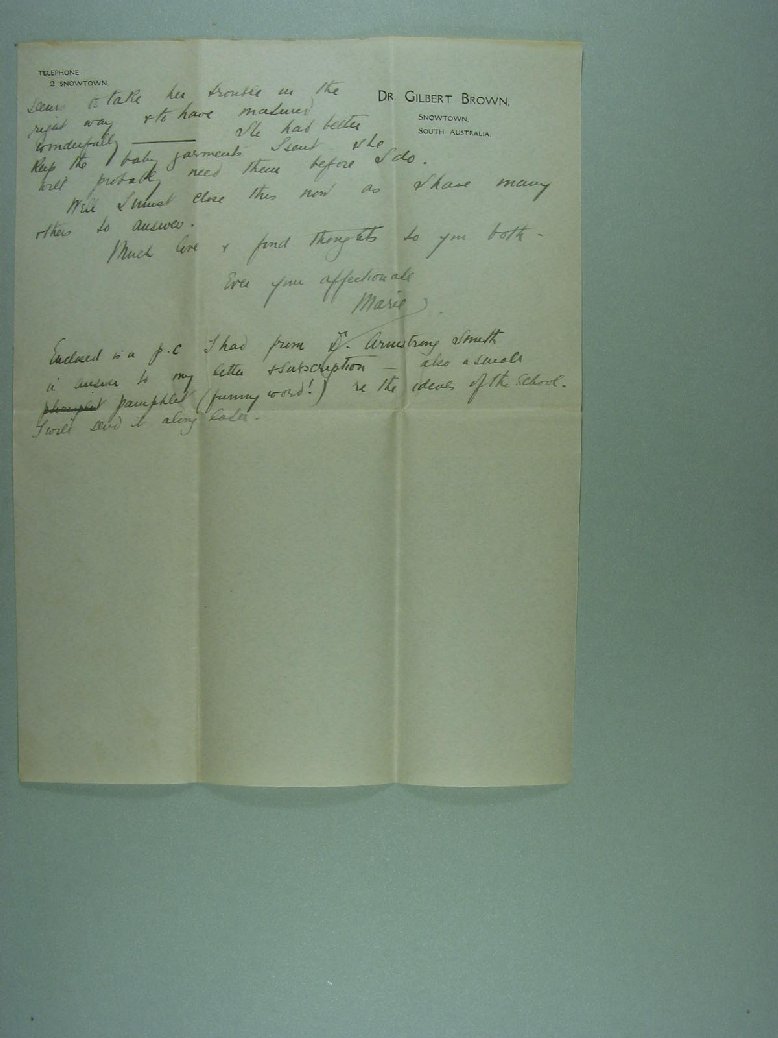 TELEPHONE
2 SNOWTOWN.
DR GILBERT BROWN,
SNOWTOWN,
SOUTH AUSTRALIA.
seems to take her trouble in the
right way & to have matured
wonderfully — She had better
keep the baby garments I sent she
will probably need them before I do.
Well I must close this now as I have many
others to answer.
Much love & fond thoughts to you both -
Ever your affectionate
Marie
Enclosed is a p.c I had from Dr. Armstrong Smith
in answer to my letter & subscription — also a small
pamphlet (funny word!) re the ideals of the School.
I will send it along later.